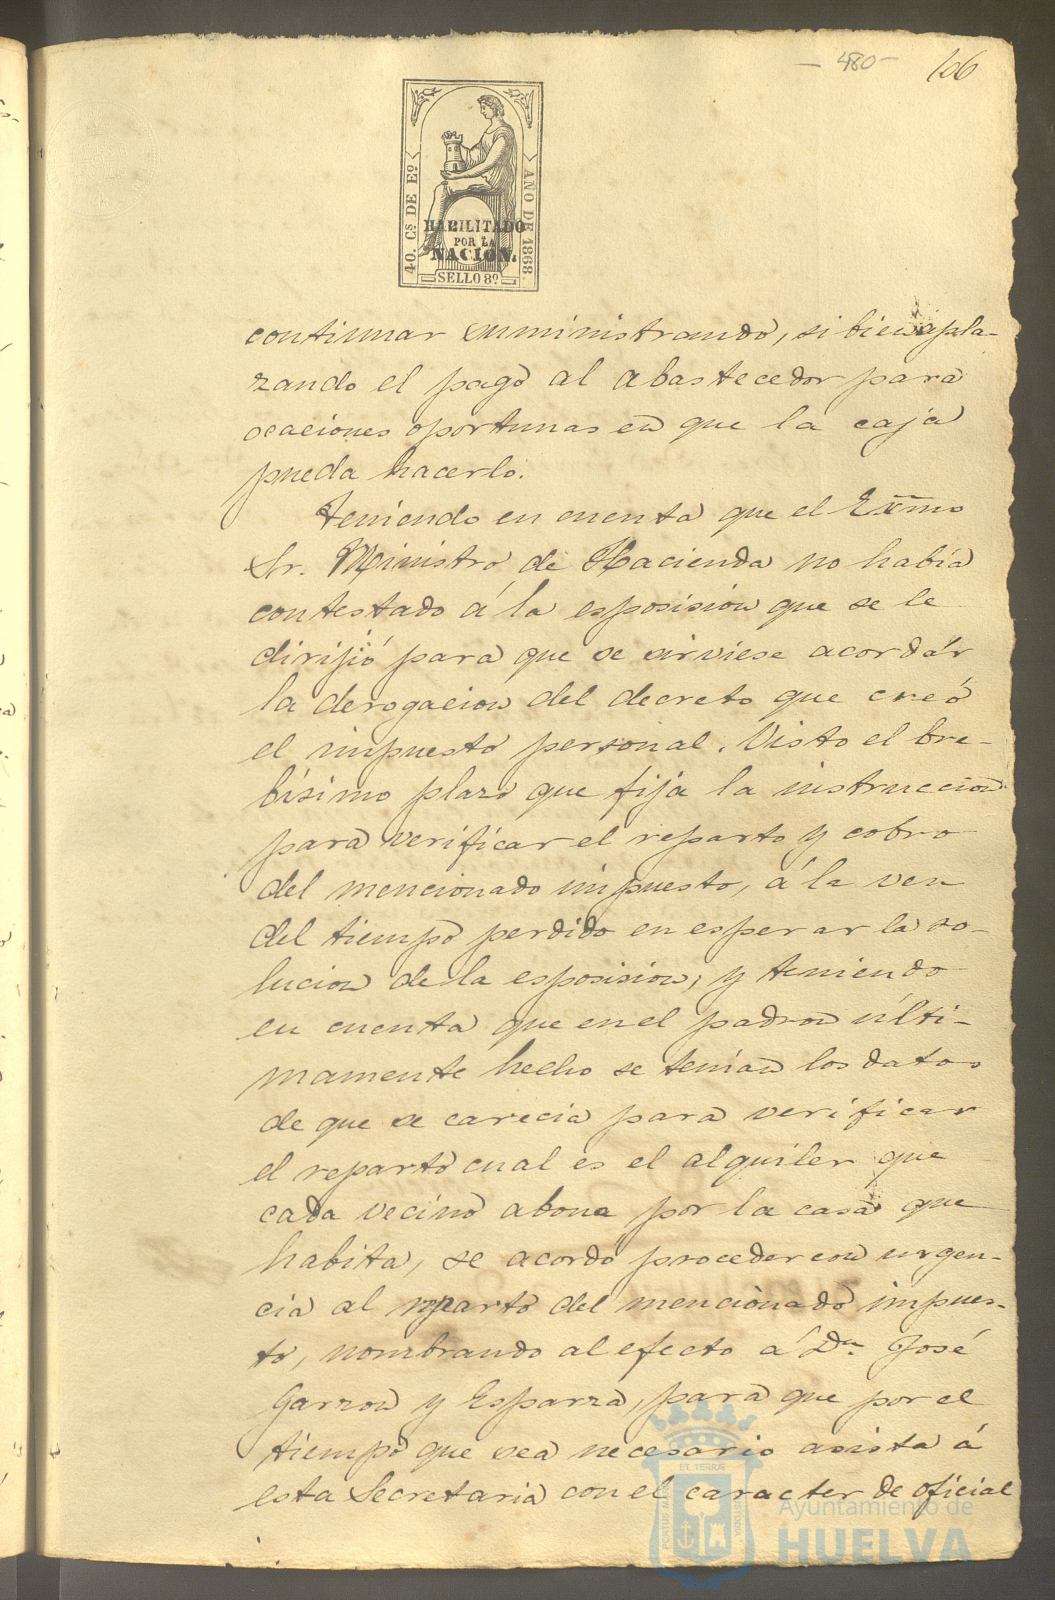 - 480 - 106
40. Cs DE Eo
AÑO DE 1868.
HABILITADO
POR LA
NACION.
SELLO 8º
continuar suministrando, si bien apla-
zando el pago al abastecedor para
ocaciones oportunas en que la caja
pueda hacerlo.
Teniendo en cuenta que el Exmo
Sr. Ministro de Hacienda no había
contestado á la esposision que se le
dirijió para que se sirviese acordár
la derogacion del decreto que creó
el impuesto personal. Visto el bre-
bísimo plazo que fija la instruccion
para verificar el reparto y cobro
del mencionado impuesto, á la vez
del tiempo perdido en esperar la so-
lucion de la esposision; y teniendo
en cuenta que en el padron últi-
mamente hecho se tenian los datos
de que se carecia para verificar
el reparto cual es el alquiler que
cada vecino abona por la casa que
habita, se acordó proceder con urgen-
cia al reparto del mencionado impues-
to, nombrando al efecto á Dn. José
Garzon y Esparza, para que por el
tiempo que sea necesario asista á
esta Secretaria con el caracter de oficial
Ayuntamiento de
HUELVA